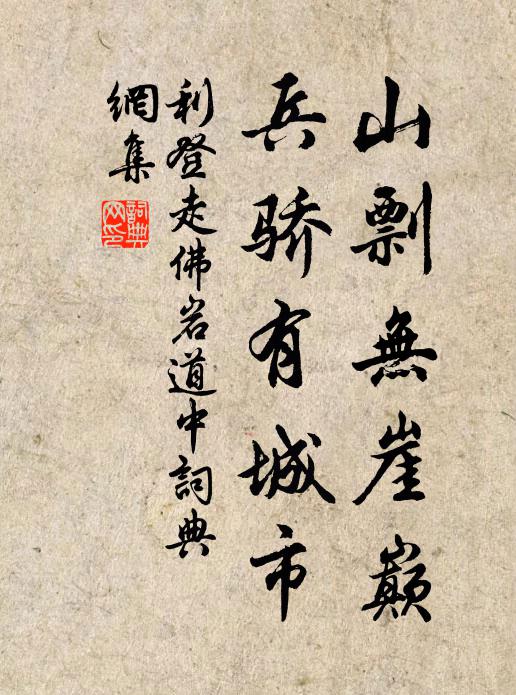 山剽無崖巔
兵骄有城市
利登走佛岩道中詞典
網集
詞典
网印